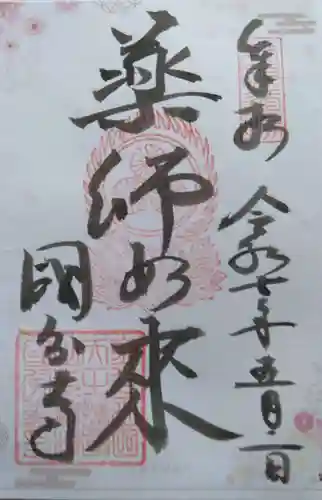 奉拝
令和七年五月二日
薬師如来
國分寺